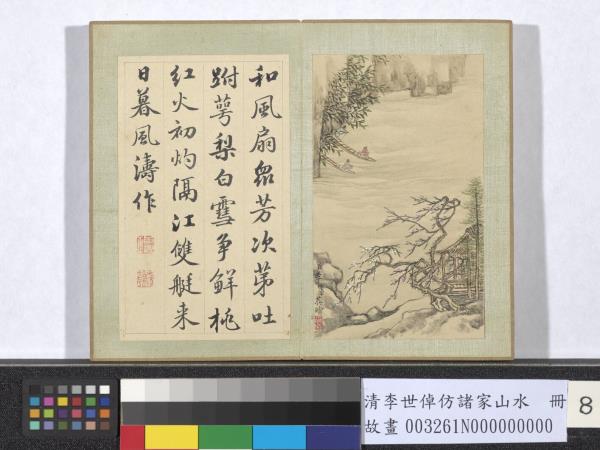 和風扇眾芳次苐吐
跗萼梨白雪爭鮮桃
紅火初灼隔江雙艇来
日暮風濤作
清李世倬仿諸家山水 冊
故畫003261N000000000
8